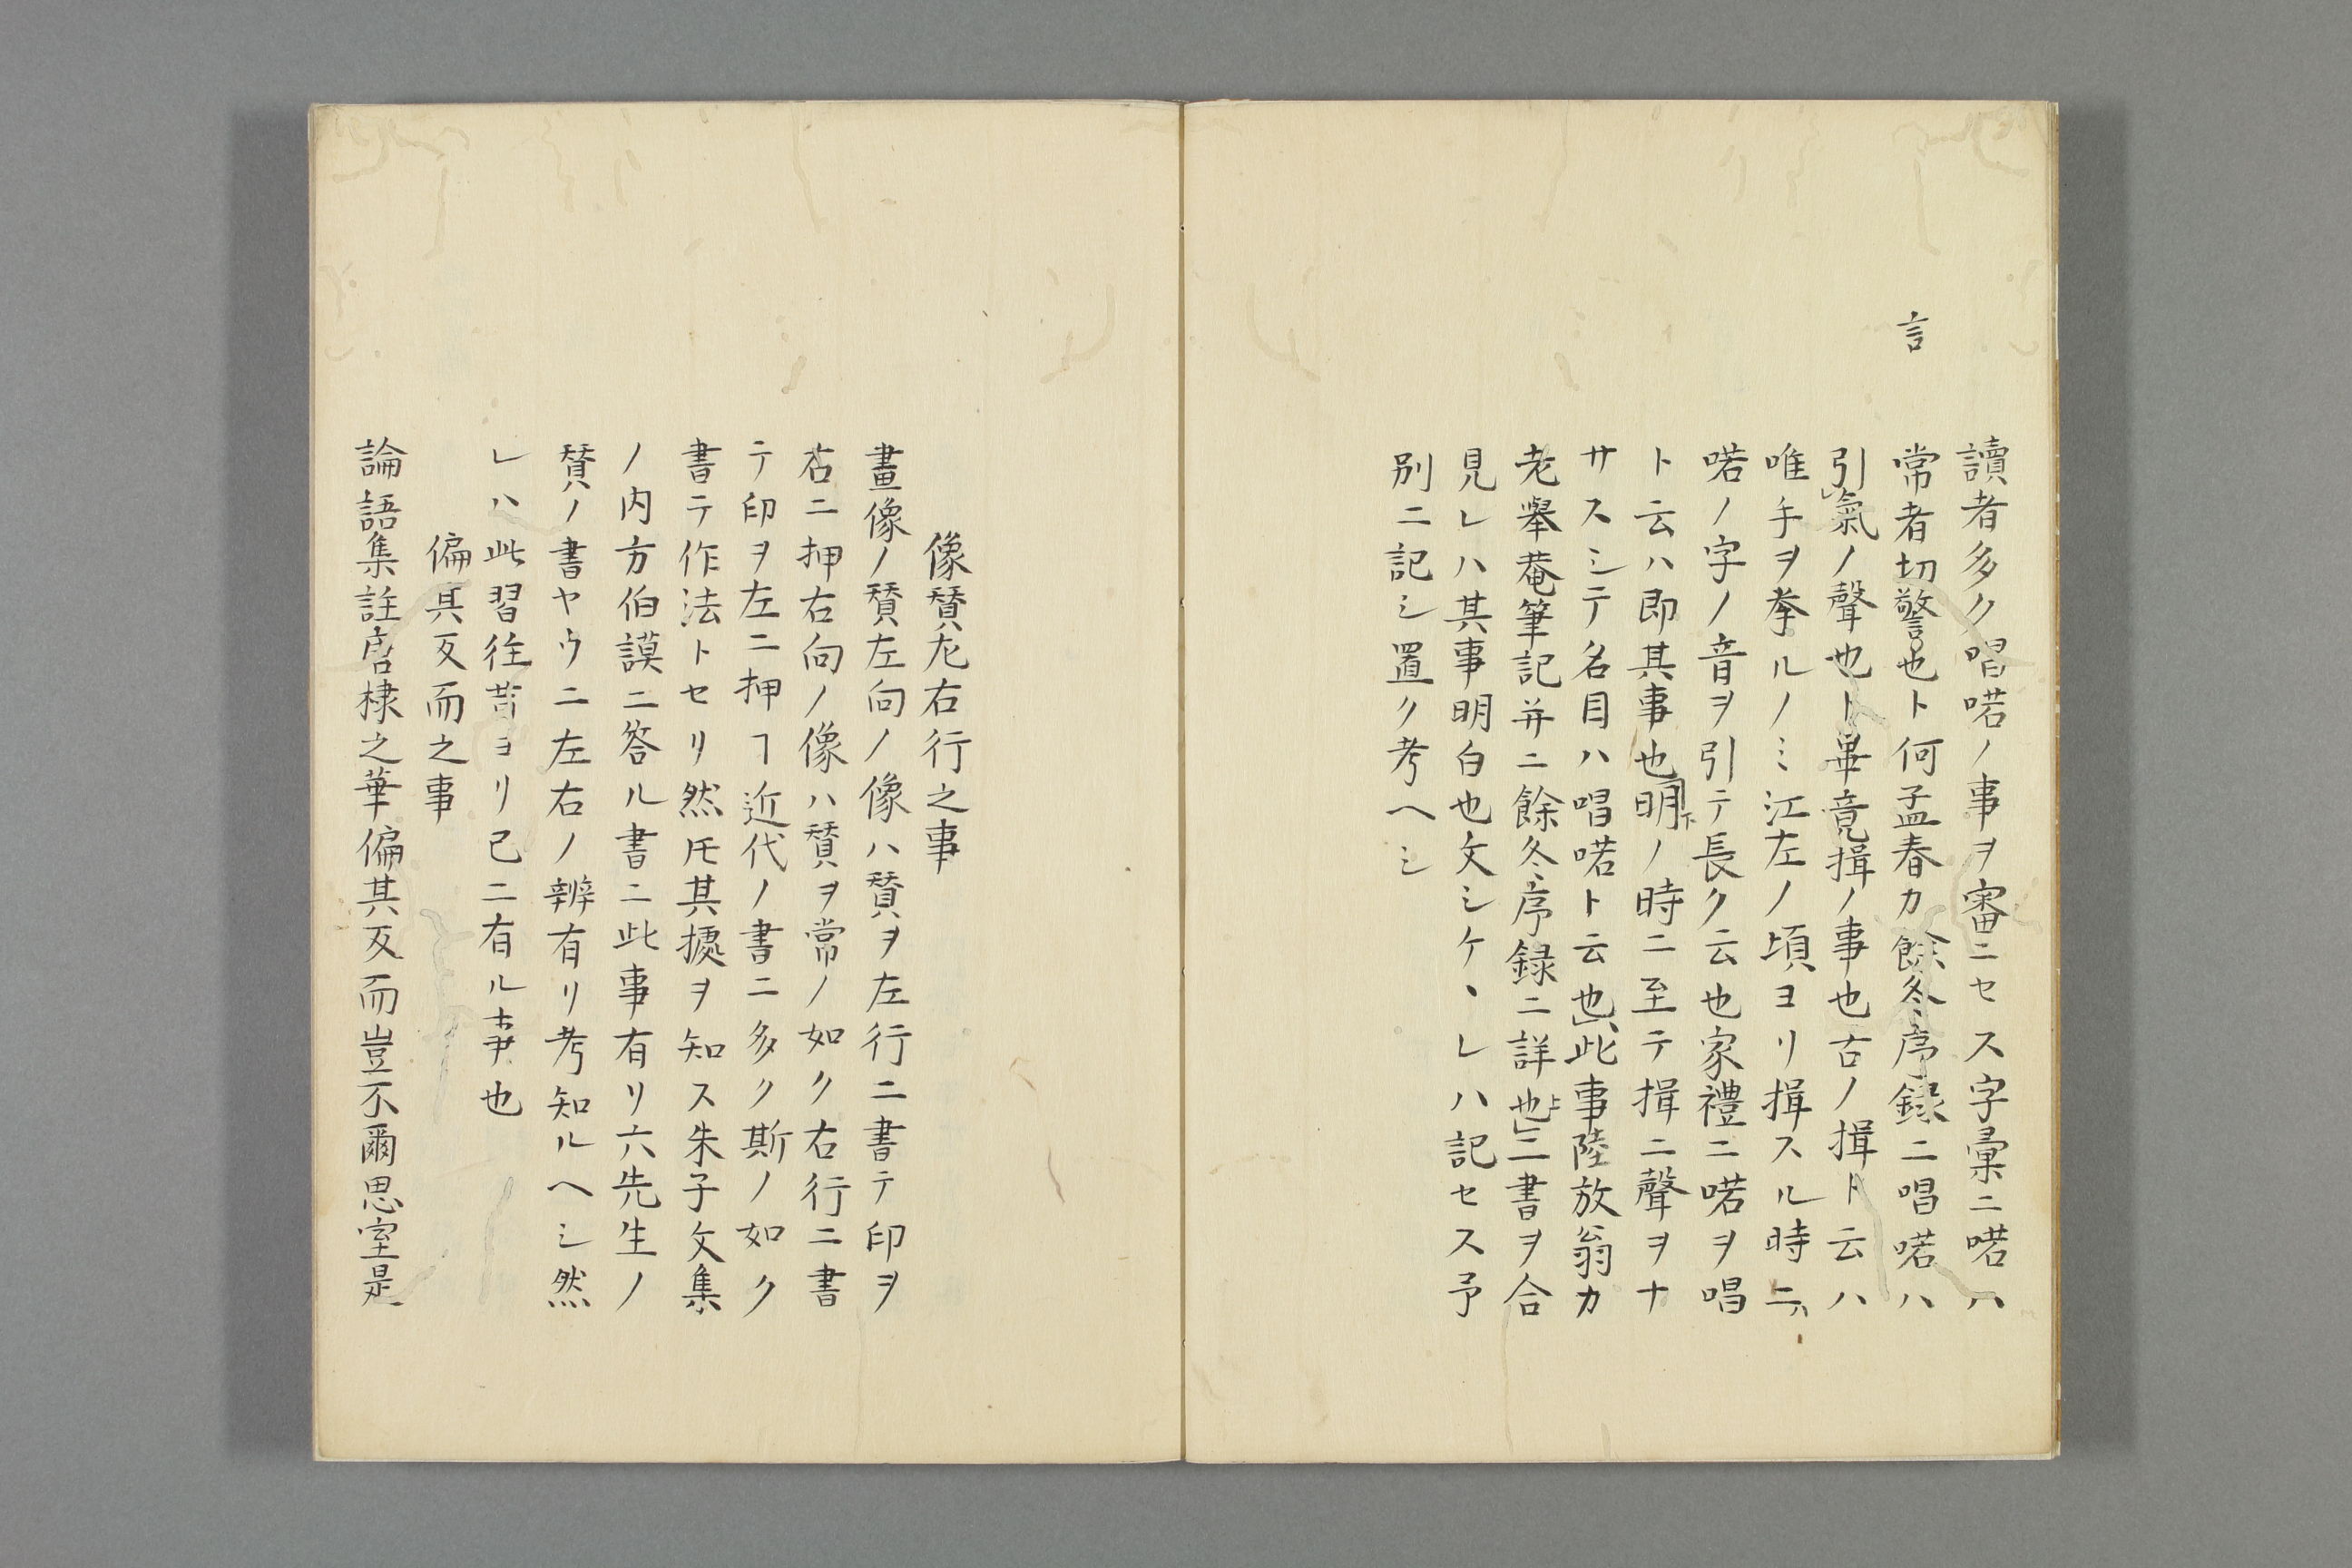 言
讀者多ク唱喏ノ事ヲ審ニセス字彙ニ喏ハ
常者切警也ト何孟春カ餘冬序録ニ唱喏ハ
引氣ノ聲也ト畢竟揖ノ事也古ノ揖ト云ハ
唯手ヲ拳ルノミ江左ノ頃ヨリ揖スル時ニハ
喏ノ字ノ音ヲ引テ長ク云也家禮ニ喏ヲ唱
ト云ハ即其事也明ノ時ニ至テ揖ニ聲ヲナ
サスシテ名目ハ唱喏ト云也此事陸放翁カ
老學菴筆記并ニ餘冬序録ニ詳也二書ヲ合
見レハ其事明白也文シケヽレハ記セス予
別ニ記シ置ク考ヘシ
像賛左右行之事
畫像ノ賛左向ノ像ハ賛ヲ左行ニ書テ印ヲ
右ニ押右向ノ像ハ賛ヲ常ノ如ク右行ニ書
テ印ヲ左ニ押ヿ近代ノ書ニ多ク斯ノ如ク
書テ作法トセリ然𪜈其據ヲ知ス朱子文集
ノ内方伯謨ニ答ル書ニ此事有リ六先生ノ
賛ノ書ヤウニ左右ノ辨有リ考知ルヘシ然
レハ此習往昔ヨリ已ニ有ル事也
偏其反而之事
論語集註唐棣之華偏其反而豈不爾思室是